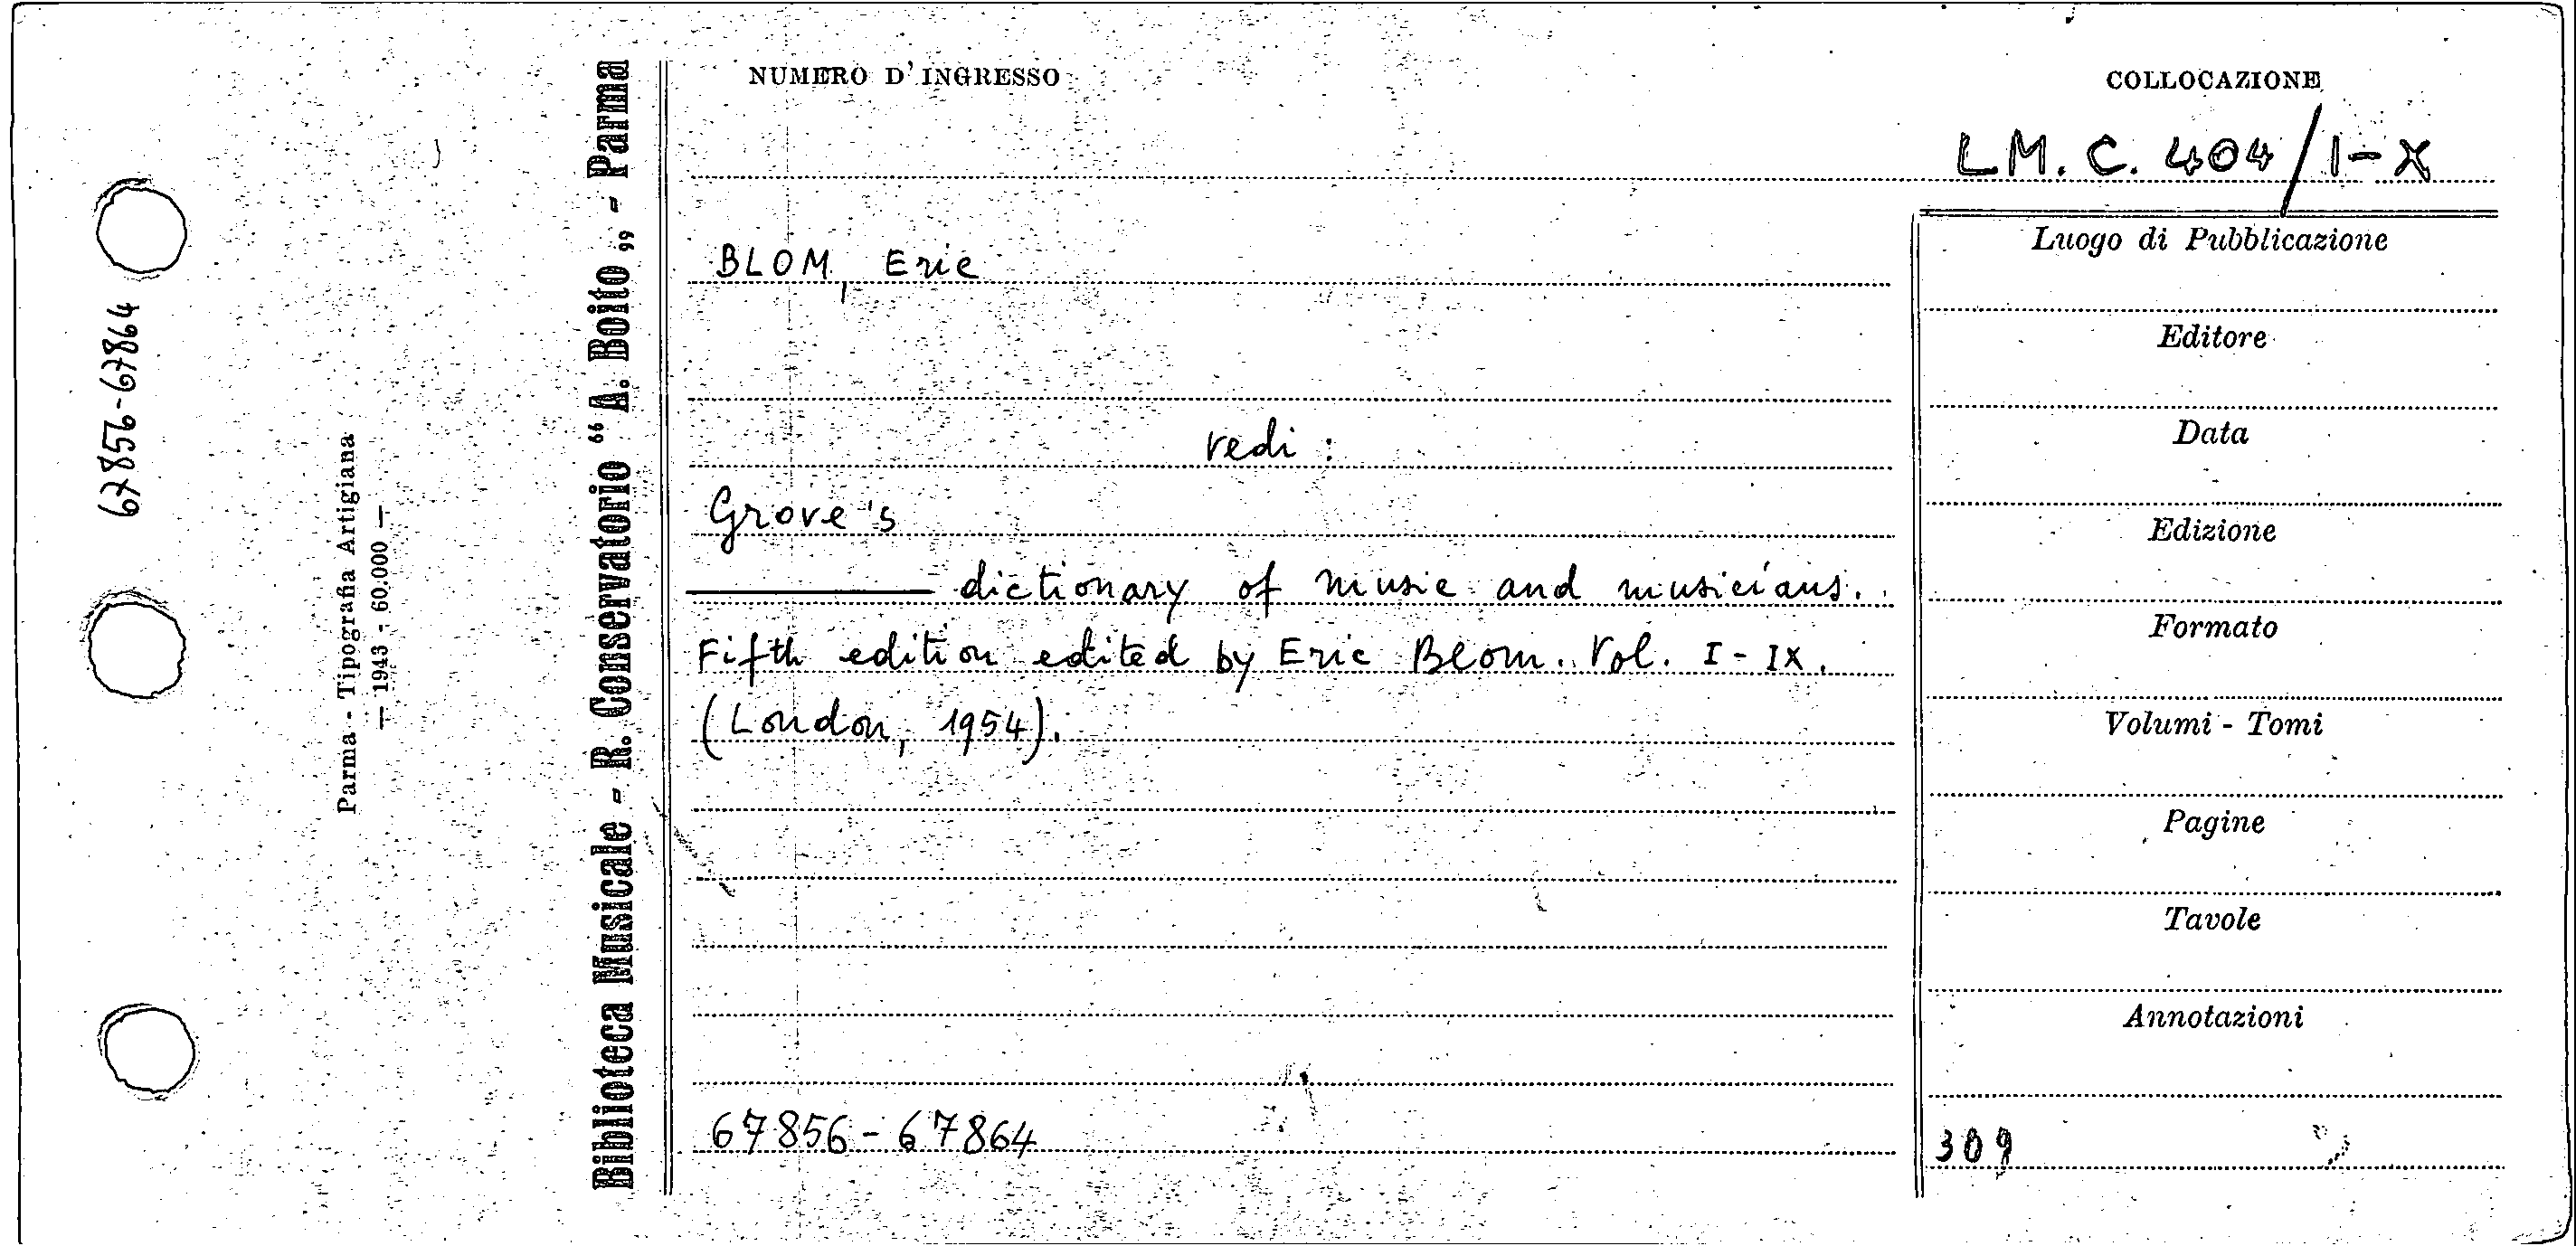 NUMERO D'INGRESSO
COLLOCAZIONE
LM. C. 404/I-X
BLOM, Eric
vedi :
Grove's
——— dictionary of music and musicians.
Fifth edition edited by Eric Blom. Vol. I-IX.
(London, 1954).
67856-67864
Luogo di Pubblicazione
Editore
Data
Edizione
Formato
Volumi - Tomi
Pagine
Tavole
Annotazioni
309
Biblioteca Musicale - R. Conservatorio “ A. Boito „ - Parma
Parma - Tipografia Artigiana
— 1943 - 60.000 —
67856-67864